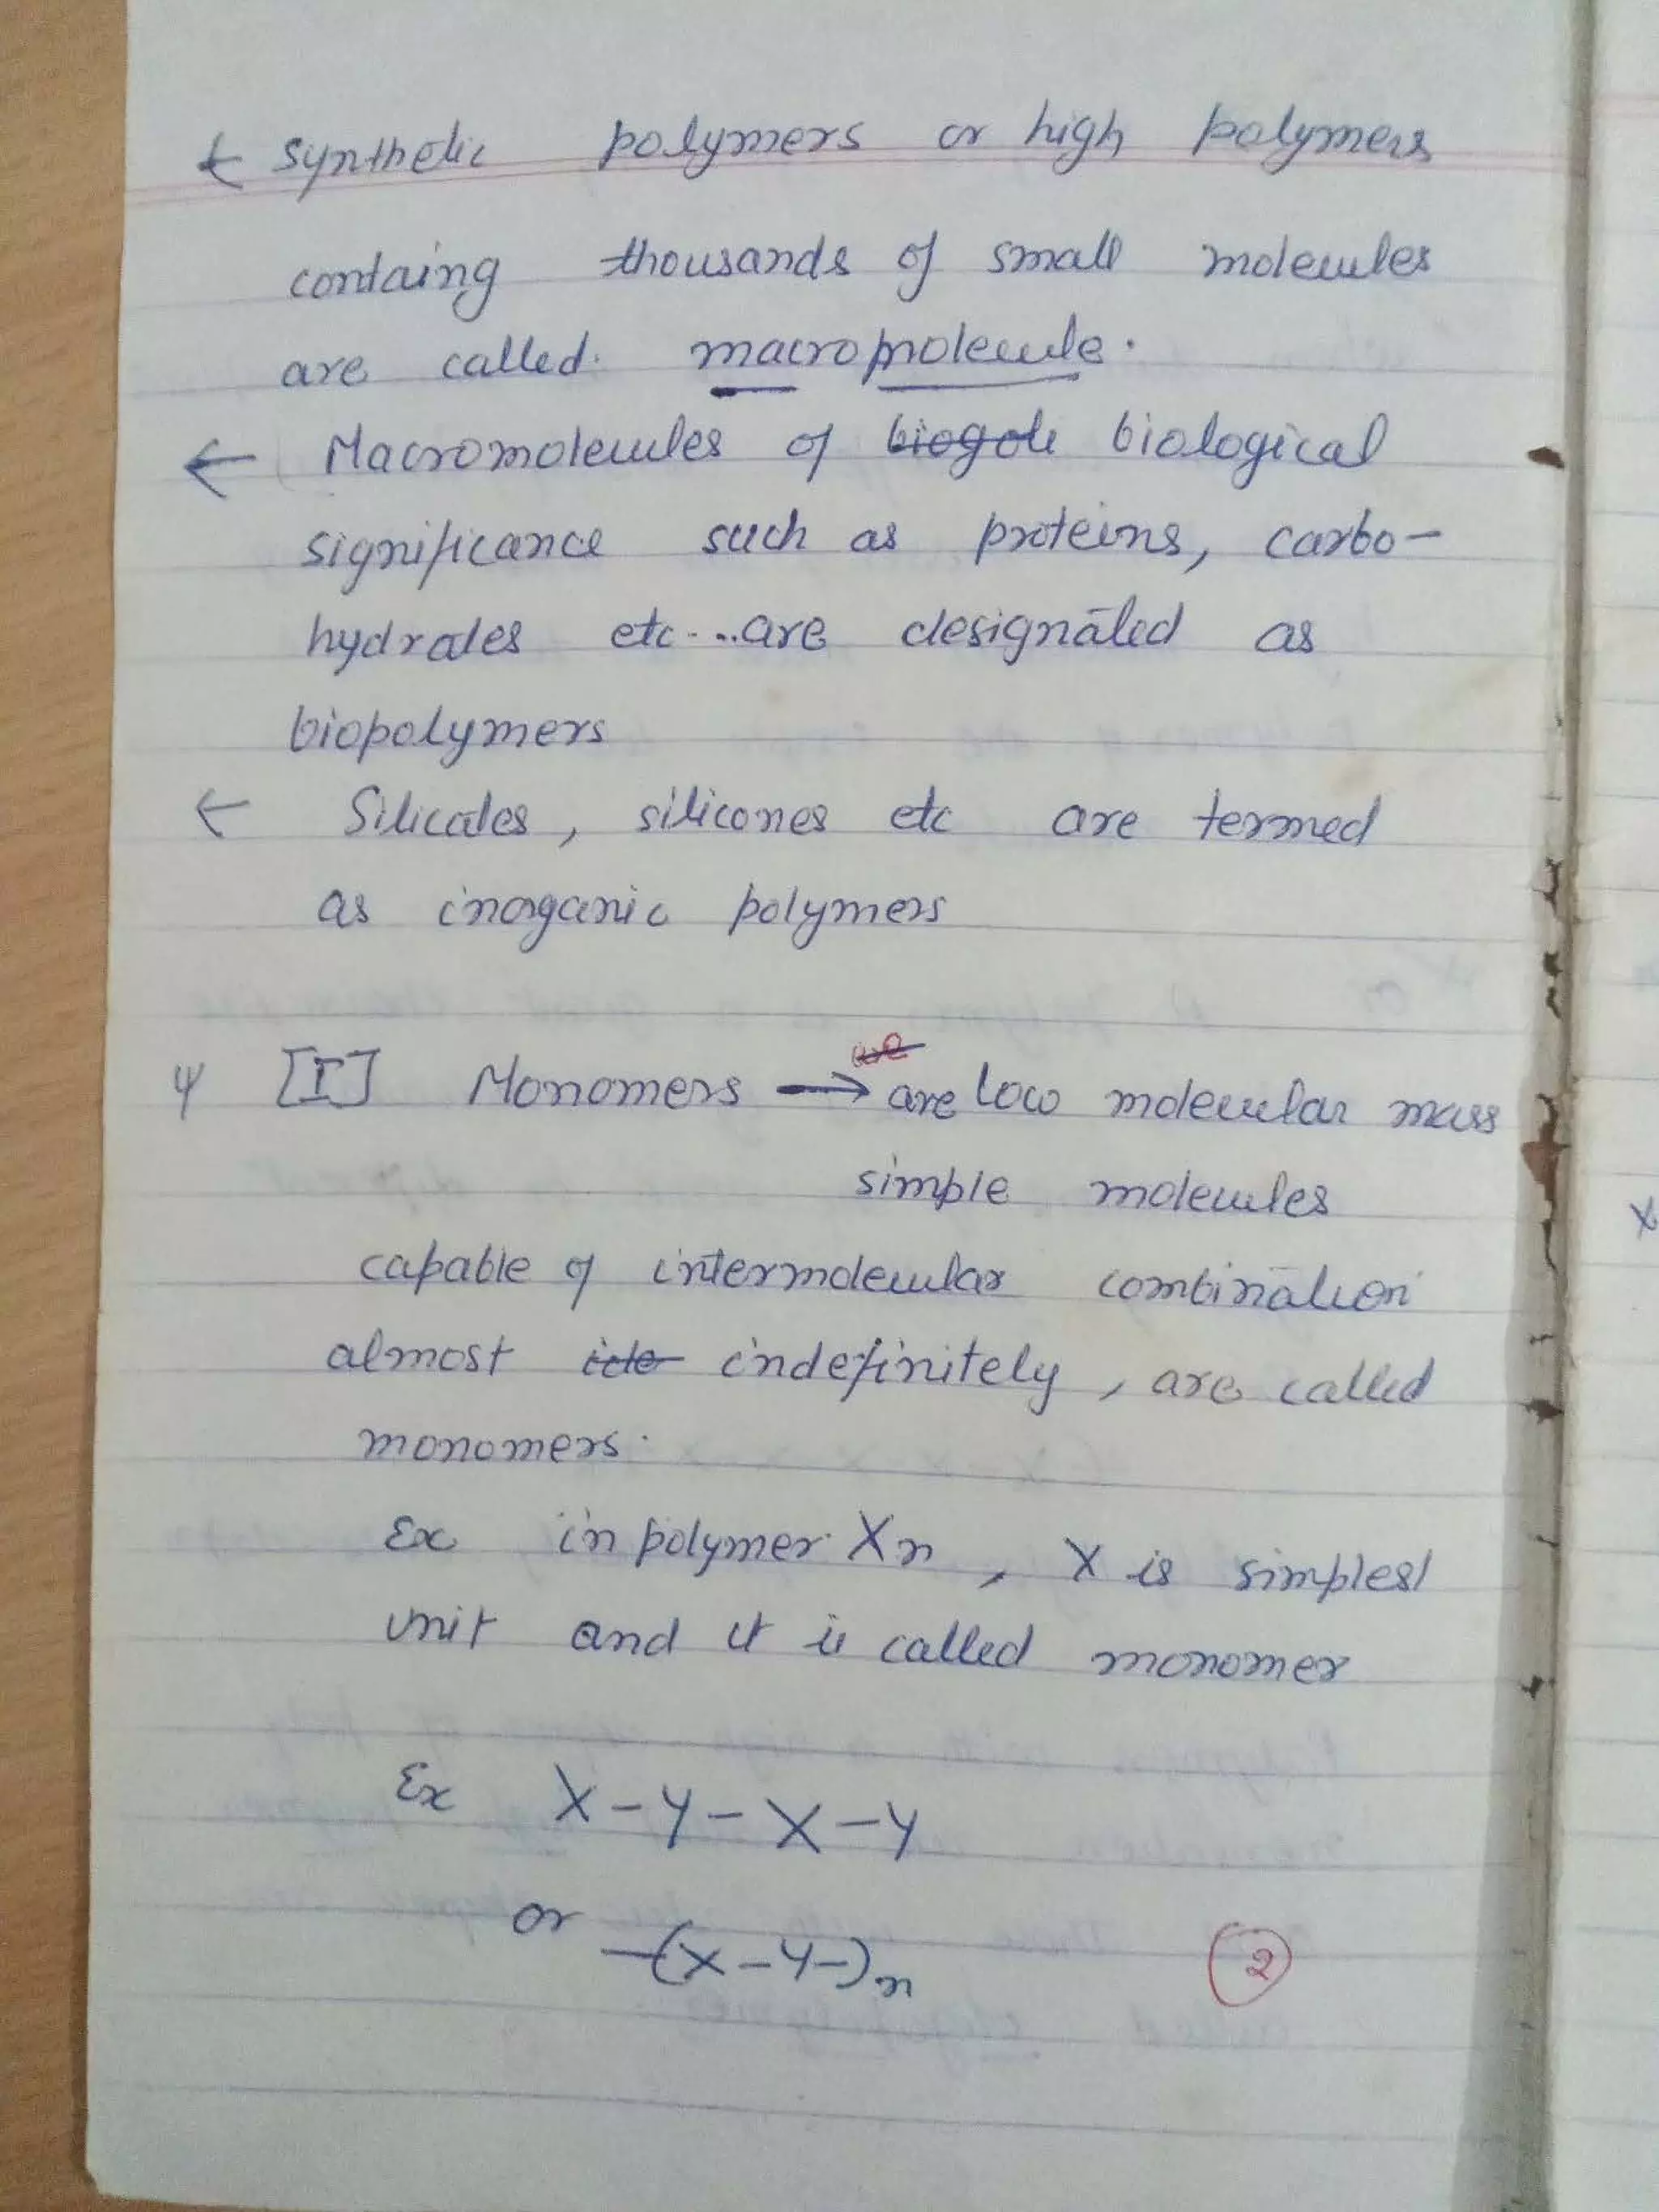 ← synthetic polymers or high polymers
containg thousands of small molecules
are called. macromolecule.
← Macromolecules of biogole biological
significance such as proteins, carbo-
hydrates etc...are designated as
biopolymers
← Silicates, silicones etc are termed
as inorganic polymers
[I] Monomers → are low molecular mass
simple molecules
capable of intermolecular combination
almost ide indefinitely, are called
monomers.
Ex in polymer Xn, X is simplest
unit and it is called monomer
Ex X-Y-X-Y
or -(X-Y-)n
2